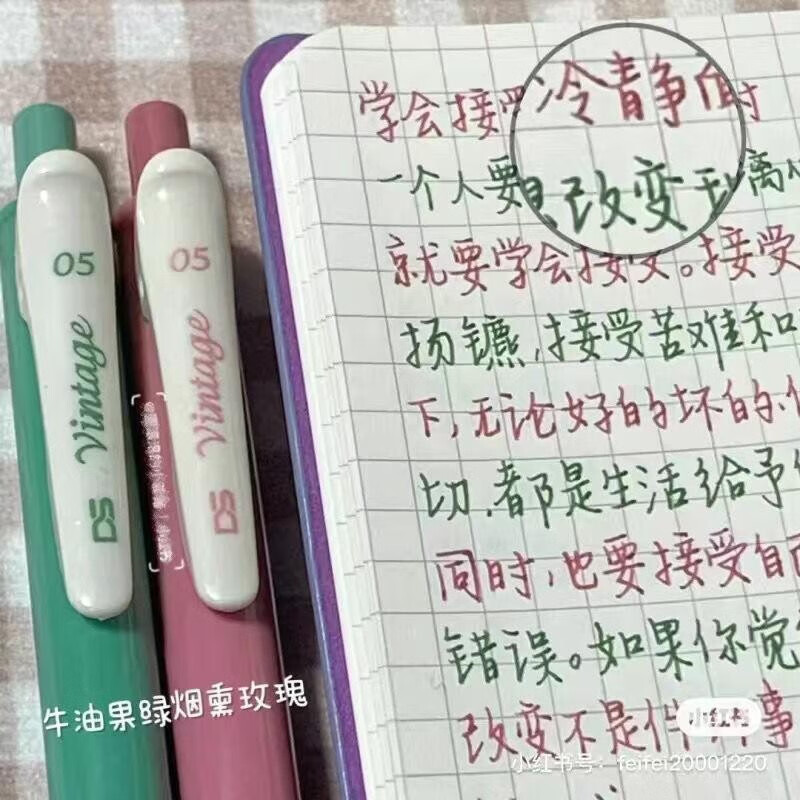 05
Vintage
DS
05
Vintage
DS
牛油果绿烟熏玫瑰
学会接受
冷静
时
一个人要
改变
离
就要学会接受。接受
扬镳,接受苦难和
下,无论好的坏的
切,都是生活给予
同时,也要接受自
错误。如果你觉
改变不是件
事
小红书
小红书号:feifei20001220